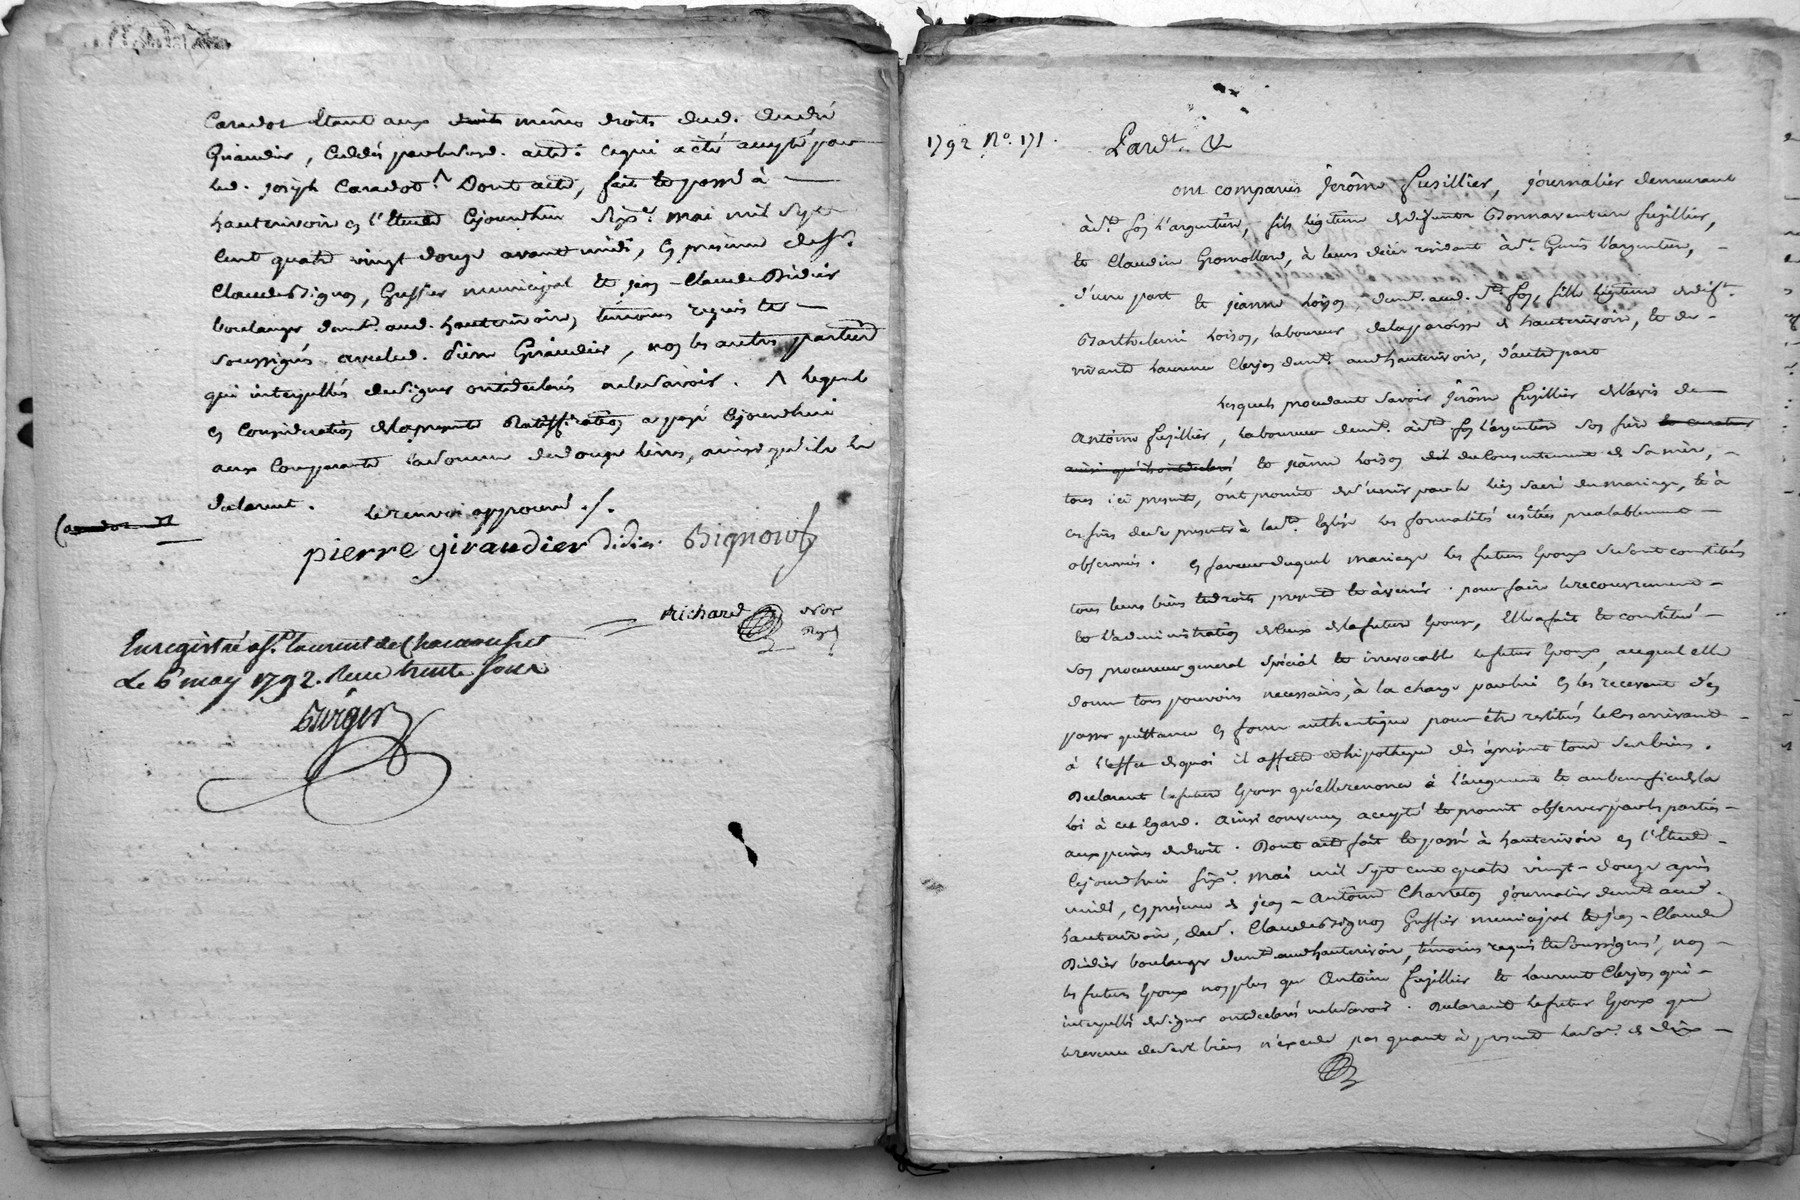 Caradot étant aux droits mêmes droits dud. André
Giraudier, cédés par led. acte. ce qui a été accepté par
led. joseph Caradot. ^ Dont acte, fait et passé à —
hauterivoir en l'Etude cejourdhui six.e mai mil sept
cent quatre vingt douze avant midi, en présence de s.r
Claude Bignon, Greffier municipal et jean-Claude Didier
boulanger dem.t aud. hauterivoir, témoins requis et —
soussignés avec led. pierre Giraudier, non les autres parties
qui interpellés de signer ont déclaré ne le savoir. ^ lequel
en considération de la presente Ratiffication a payé cejourdhui
aux Comparants la somme de douze livres, ainsi qu'ils le
déclarent. le renvoi approuvé ./.
Caradot
pierre giraudier Didier Bignon Gff
Richard Not
Royal
Enregistré a S.t Laurent de Chamousset
Le 6 may 1792. Reçu trente sous
Burger
1792 N.o 171.
Pard.t &
ont comparu jérôme fusillier, journalier demeurant
à S.t foy l'argentière, fils légitime de défunt Bonnaventure fusillier,
et Claudine Gromollard, à leurs décès résidant à S.t Genis l'argentière, —
d'une part et jeanne Loison dem.t aud. S.te foy, fille légitime de déf.t
Barthelemi Loison, laboureur de la paroisse de hauterivoir, et de —
vivante Laurence Clerjon dem.t aud hauterivoir, d'autre part
Lesquels procedant savoir jérôme fusillier de l'avis de —
Antoine fusillier, laboureur dem.t à S.te foy l'argentière son frère et curateur
ainsi qu'ils ont déclaré et jeanne Loison du consentement de sa mère, —
tous ici présents, ont promis de s'unir par le lien sacré du mariage, et à
ces fins de se présenter à la S.te Eglise les formalités usitées préalablement —
observées. En faveur duquel mariage les futurs Epoux se sont constitués
tous leurs biens et droits présents et à venir. pour faire le recouvrement —
et l'administration de ceux de la future Epouse, Elle a fait et constitué —
son procureur general spécial et irrevocable le futur Epoux, auquel elle
donne tous pouvoirs necessaires, à la charge par lui en les recevant d'en
passer quittance en forme authentique pour être restitués le cas arrivant —
à l'effet de quoi il affecte et hipothèque dès àprésent tous ses biens.
Déclarant la future Epouse qu'elle renonce à l'augment et au benefice de la
loi à cet Egard. Ainsi convenu, accepté et promis observer par les parties —
aux peines de droit. Dont acte fait et passé à hauterivoir en l'Etude —
cejourdhui six.e mai mil sept cent quatre vingt-douze après
midi, en présence de jean-Antoine Charreton journalier dem.t aud.
hauterivoir, de s.r Claude Bignon Greffier municipal et jean-Claude
Didier boulanger dem.t aud hauterivoir, témoins requis et soussignés, non —
les futurs Epoux non plus que Antoine fusillier et Laurence Clerjon qui —
interpellés de signer ont déclaré ne le savoir. Déclarant le futur Epoux que
le revenu de ses biens n'excede pas quant à present la so.e de dix —